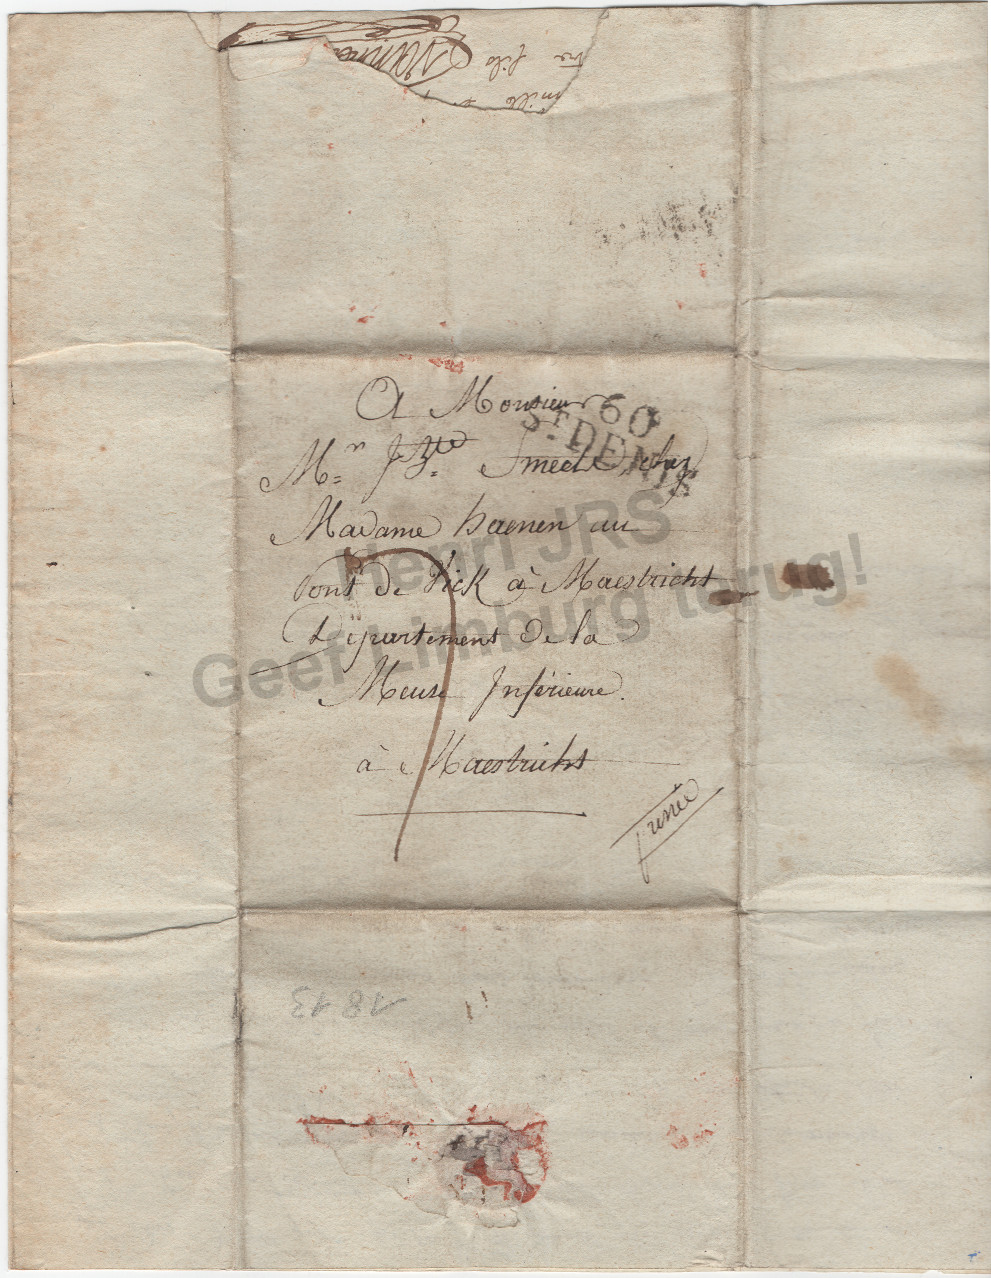 votre fils
A Monsieur
60
ST DENIS
Mr. Smeets chez
Madame haenen au
Pont de Vick à Maestricht
Département de la
Meuse Inférieure.
à Maestricht
7
1813
Henri JRS
Geef Limburg terug!